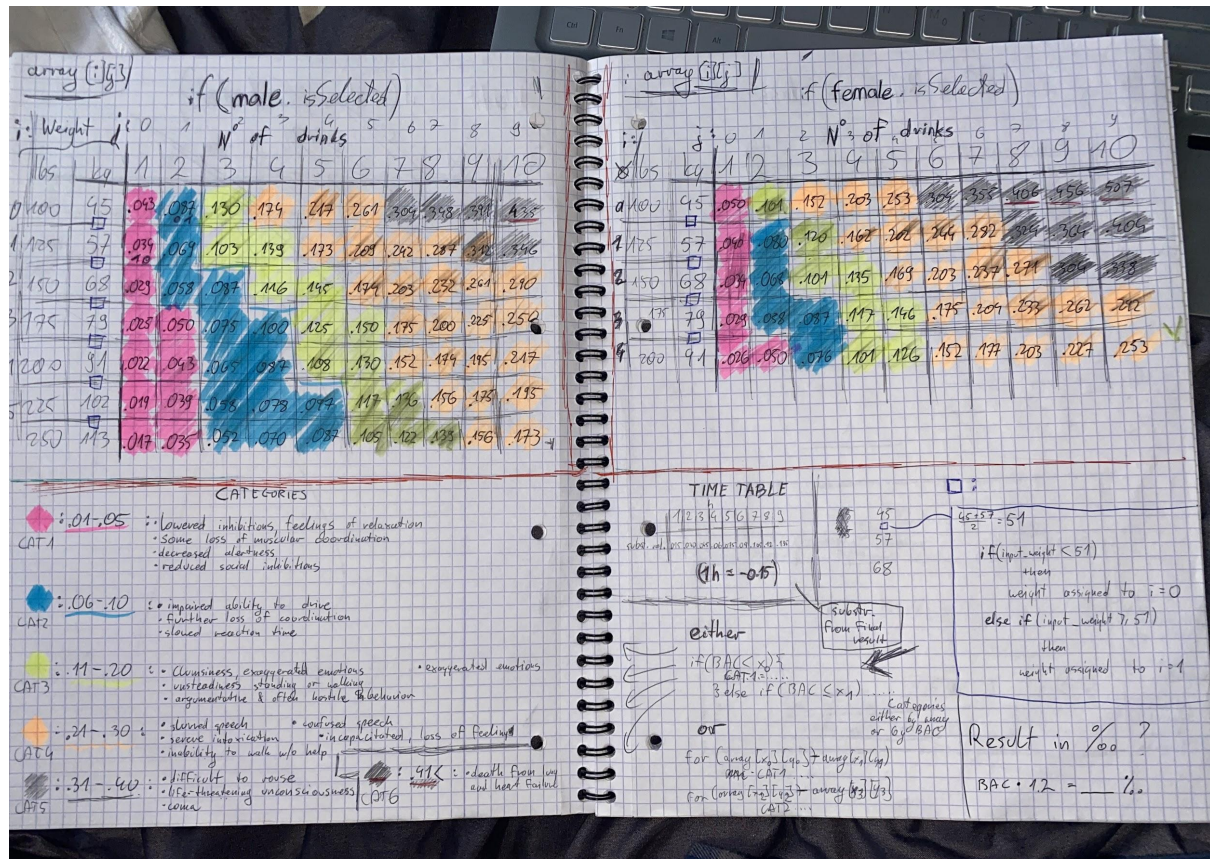 array [i][j]
if (male. isSelected)
i: Weight j: 0 1 2 3 4 5 6 7 8 9
N° of drinks
lbs kg 1 2 3 4 5 6 7 8 9 10
0 100 45 .043 .087 .130 .174 .217 .261 .304 .348 .391 .435
1 125 57 .034 .069 .103 .139 .173 .209 .242 .287 .312 .346
2 150 68 .029 .058 .087 .116 .145 .174 .203 .232 .261 .290
3 175 79 .025 .050 .075 .100 .125 .150 .175 .200 .225 .250
200 91 .022 .043 .065 .087 .108 .130 .152 .174 .195 .217
225 102 .019 .039 .058 .078 .097 .117 .136 .156 .175 .195
250 113 .017 .035 .052 .070 .087 .105 .122 .139 .156 .173
CATEGORIES
CAT1 : .01-.05 : • Lowered inhibitions, feelings of relaxation
• Some loss of muscular coordination
• decreased alertness
• reduced social inhibitions
CAT2 : .06-.10 : • impaired ability to drive
• further loss of coordination
• slowed reaction time
CAT3 : .11-.20 : • Clumsiness, exaggerated emotions • exaggerated emotions
• unsteadiness standing or walking
• argumentative & often hostile behavior
CAT4 : .21-.30 : • slurred speech • confused speech
• severe intoxication • incapacitated, loss of feelings
• inability to walk w/o help
CAT5 : .31-.40 : • difficult to rouse
• life-threatening unconsciousness
• coma
CAT6 : .41< : • death from lung
and heart failure
array [i][j]
if (female. isSelected)
i: j: 0 1 2 3 4 5 6 7 8 9
N° of drinks
lbs kg 1 2 3 4 5 6 7 8 9 10
0 100 45 .050 .101 .152 .203 .253 .304 .355 .406 .456 .507
1 125 57 .040 .080 .120 .162 .202 .244 .282 .324 .364 .404
2 150 68 .034 .068 .101 .135 .169 .203 .237 .271 .304 .338
3 175 79 .029 .058 .087 .117 .146 .175 .204 .233 .262 .292
4 200 91 .026 .050 .076 .101 .126 .152 .177 .203 .227 .253
TIME TABLE
h
1 2 3 4 5 6 7 8 9
(1h = -0.15)
substr.
from final
result
either
if (BAC < x0) {
CAT1 = ....
} else if (BAC ≤ x1) ....
Categories
either by array
or by BAC
or
for (array [x0][y0] - array [x1][y1]
CAT1 ....
for (array [x2][y2] - array [x3][y3]
CAT2 ....
45
57
68
:
45+57/2 = 51
if (input_weight < 51)
then
weight assigned to i=0
else if (input_weight ≥ 51)
then
weight assigned to i=1
Result in ‰ ?
BAC • 1.2 = __ ‰
Ctrl
Fn
Alt